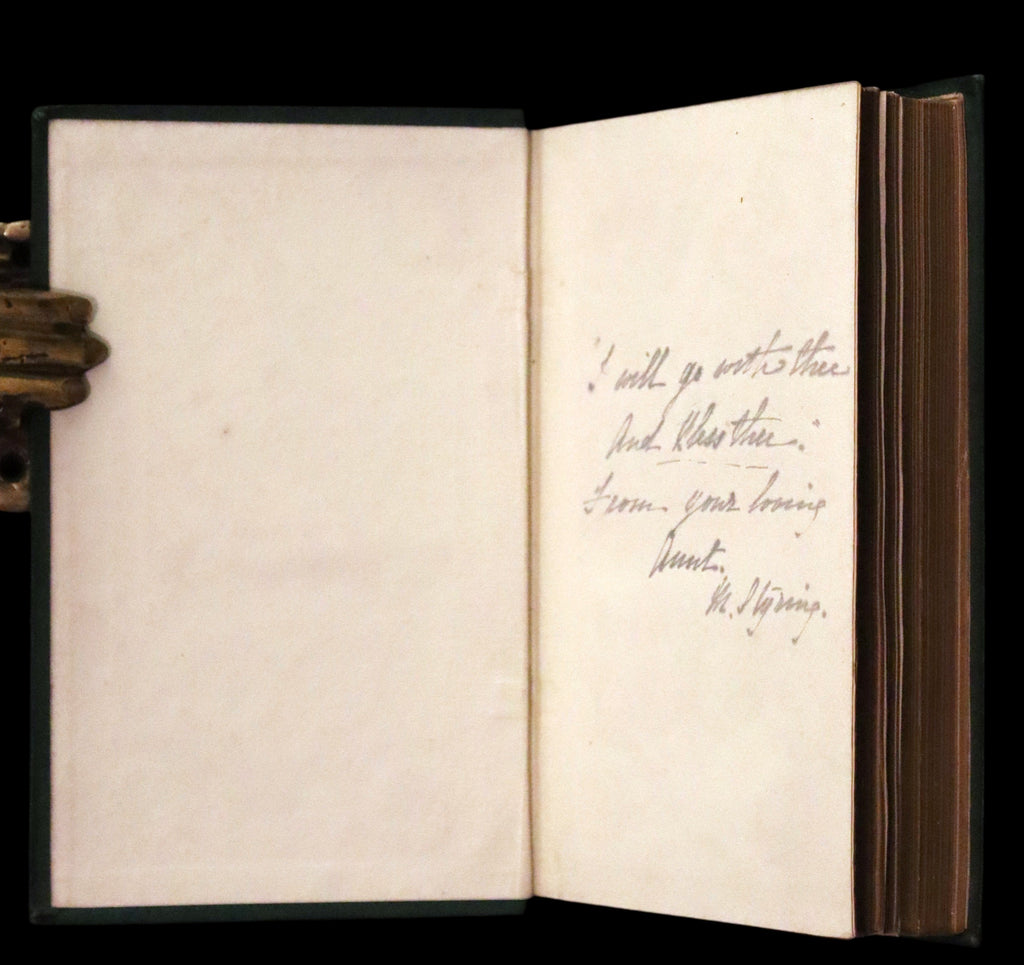 "I will go with thee
And bless thee."
From your loving
Aunt.
M. Styring.